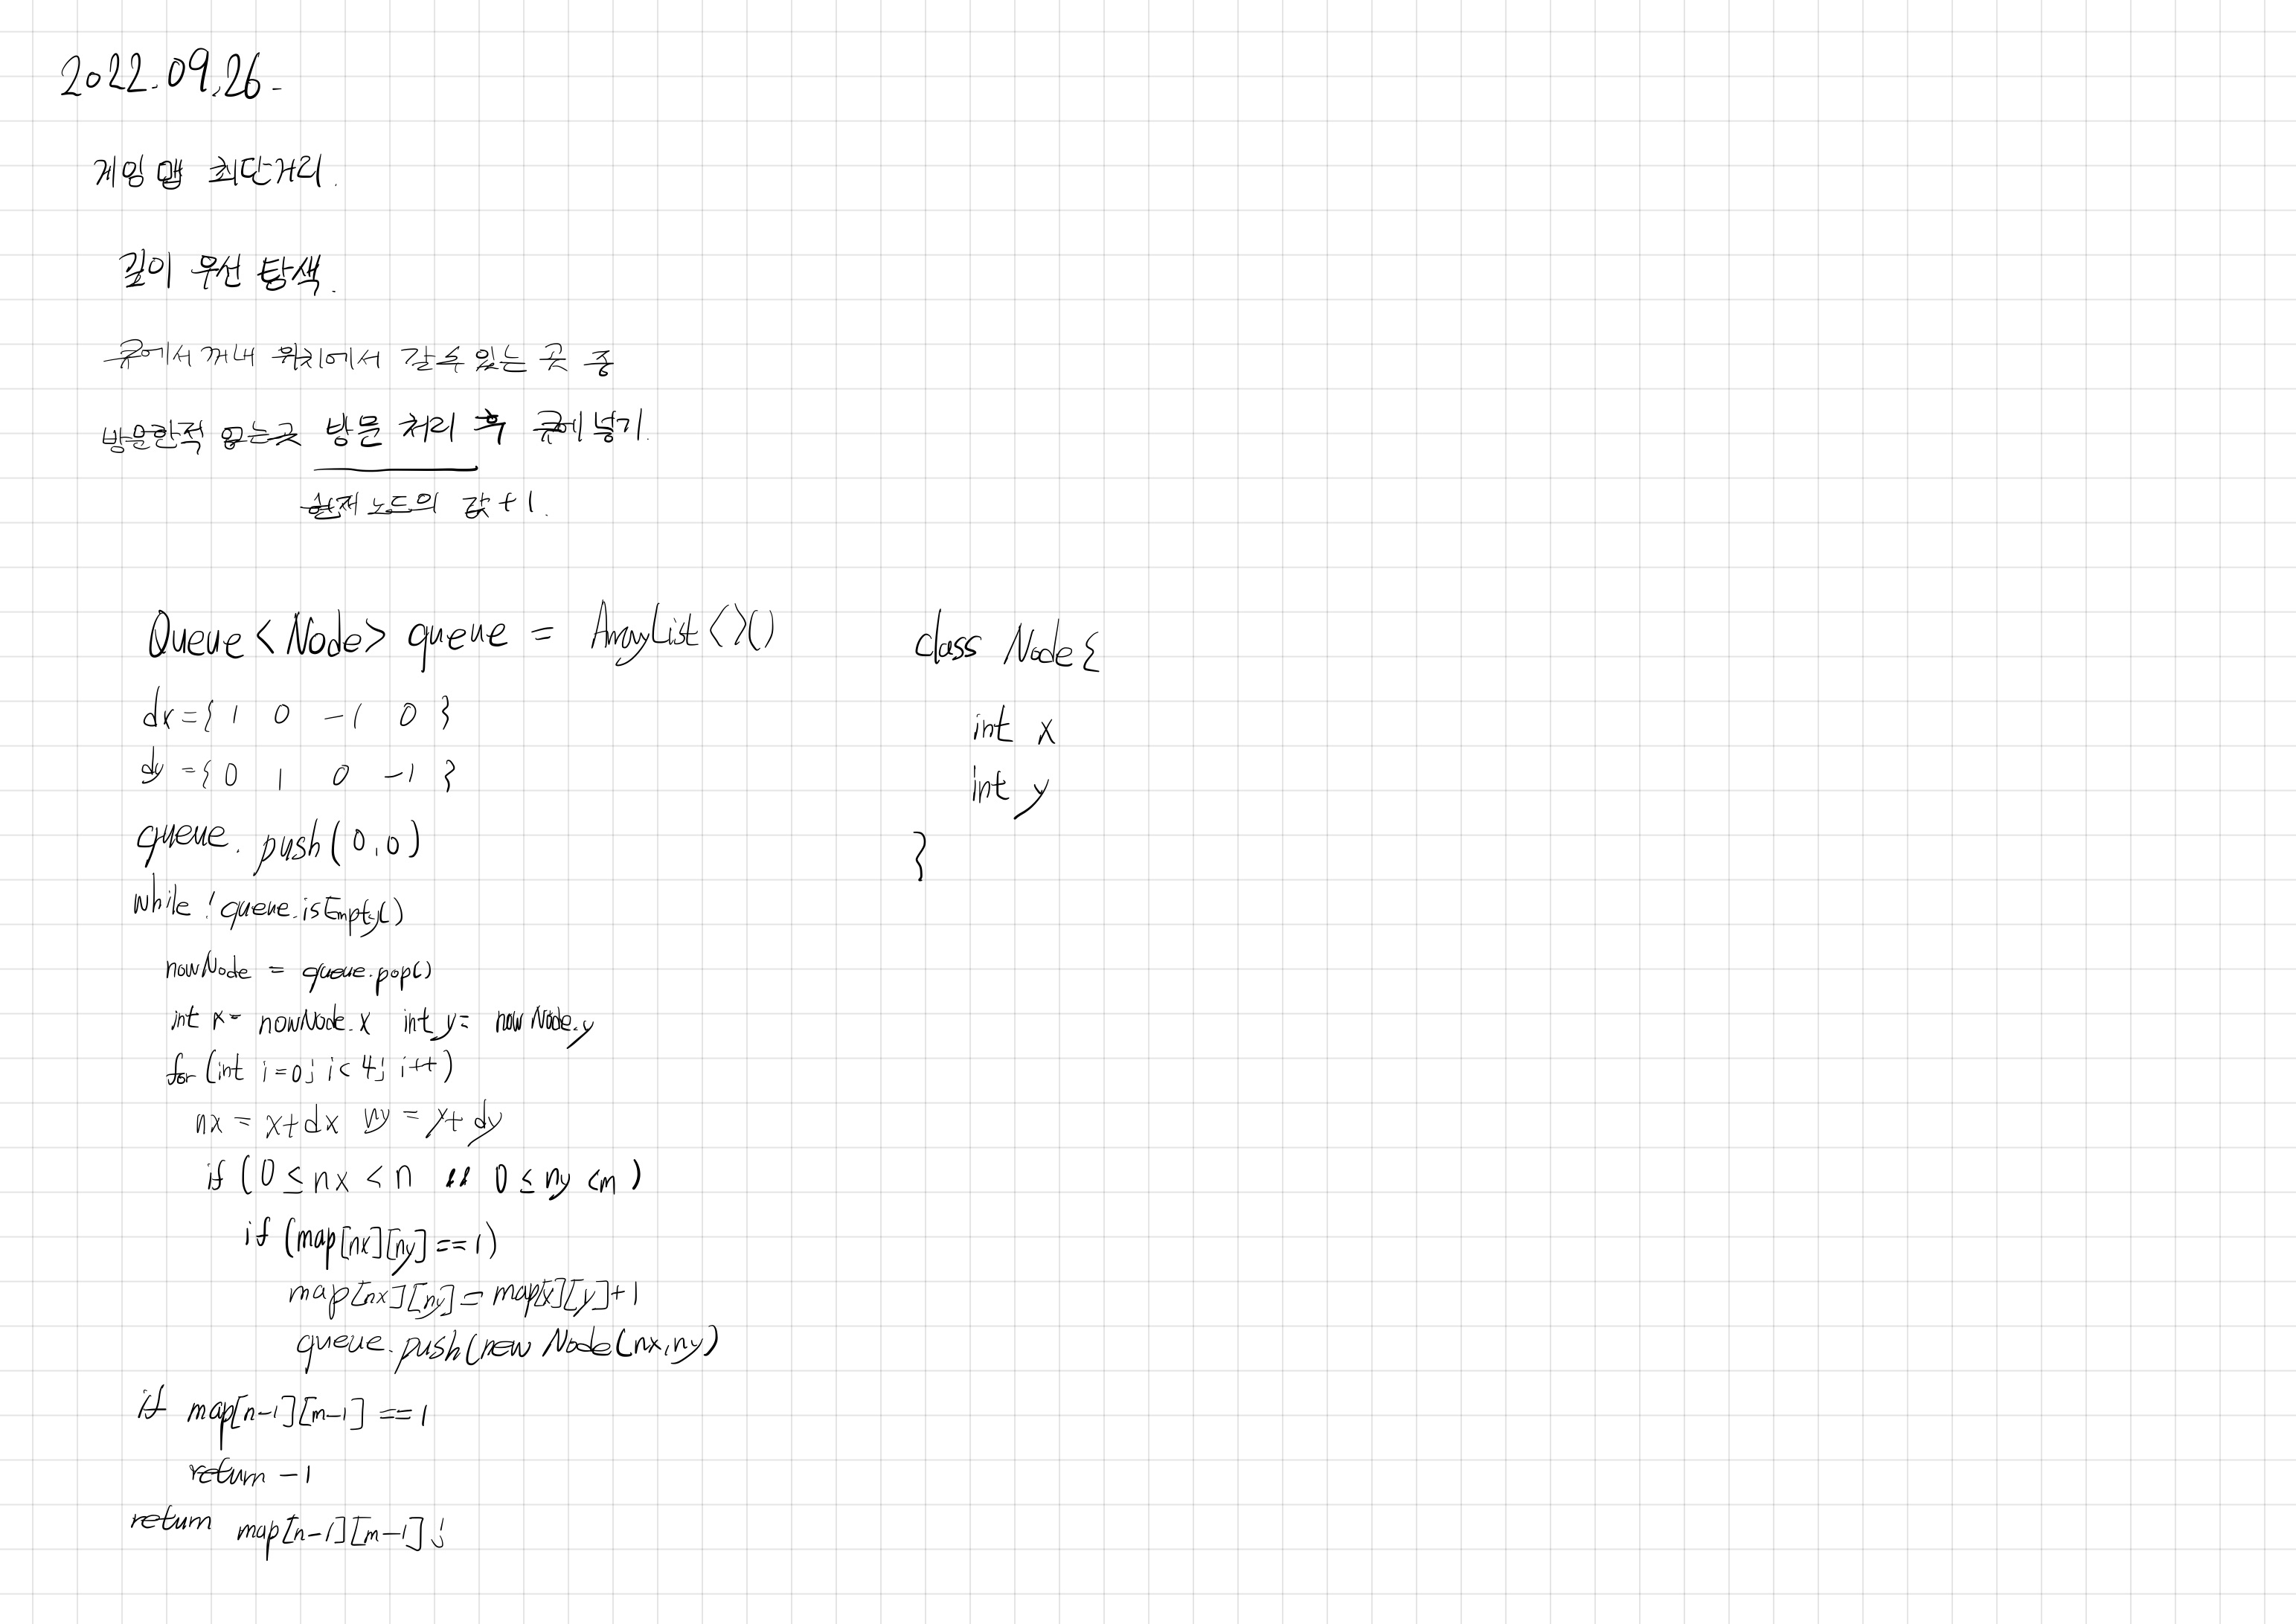 2022.09.26.
게임 맵 최단거리.
깊이 우선 탐색.
큐에서 꺼내 위치에서 갈 수 있는 곳 중
방문한적 없는곳 방문 처리 후 큐에 넣기.
현재 노드의 값+1.
Queue<Node> queue = ArrayList<>()
dx={ 1 0 -1 0 }
dy={ 0 1 0 -1 }
queue.push(0,0)
while !queue.isEmpty()
nowNode = queue.pop()
int x= nowNode.x int y= nowNode.y
for (int i=0; i<4; i++)
nx = x+dx ny = y+dy
if (0 ≤ nx < n && 0 ≤ ny < m )
if (map[nx][ny]==1)
map[nx][ny]=map[x][y]+1
queue.push(new Node(nx,ny)
if map[n-1][m-1] ==1
return -1
return map[n-1][m-1];
class Node{
int x
int y
}